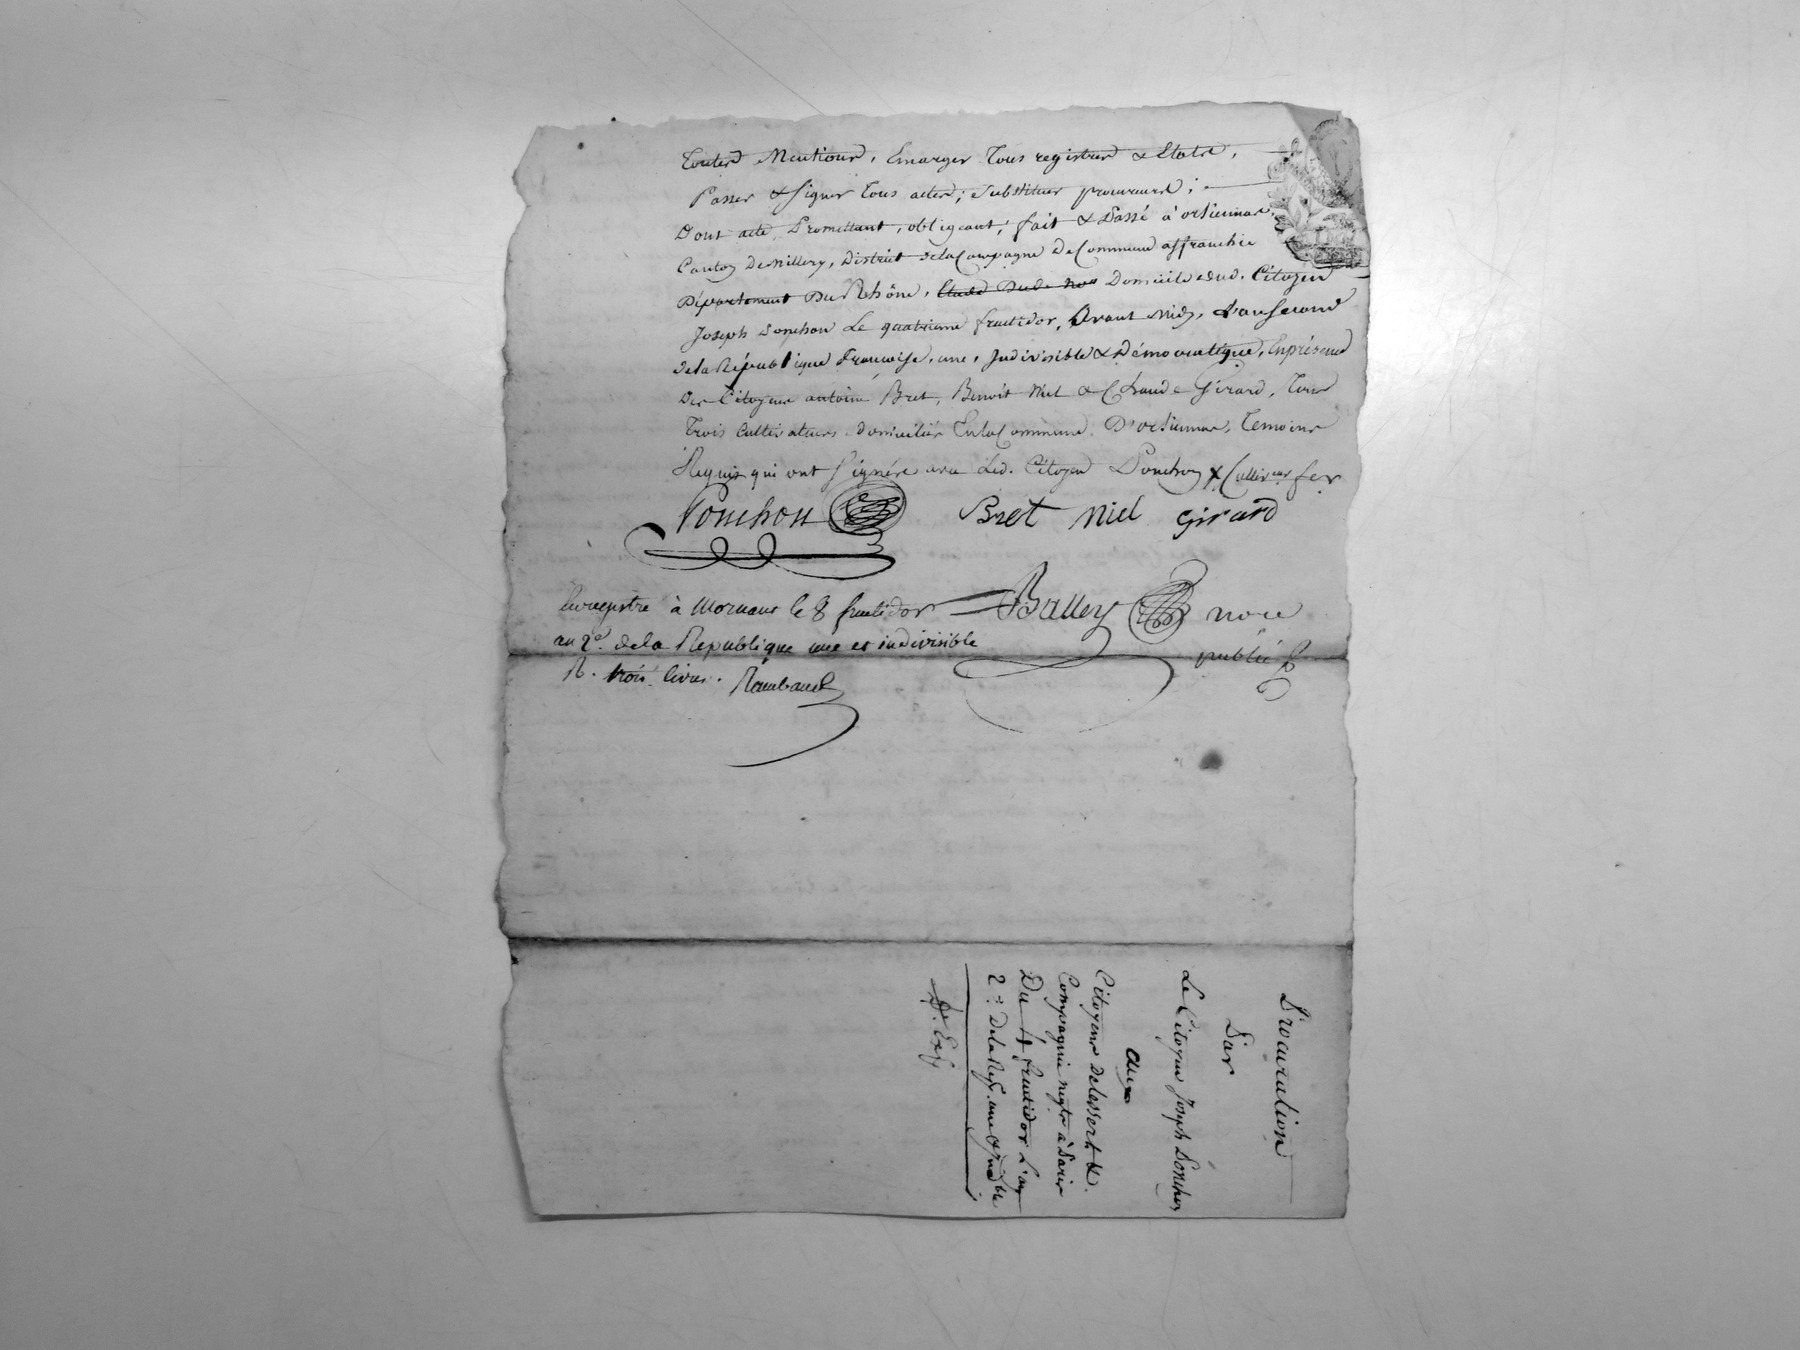 Toutes Mentions, Emarger Tous registres & Etats,
Passer & signer Tous actes; substituer procureurs;
Dont acte Promettant, obligeant; fait & Passé à orliennas,
Canton De Millery, District dela Campagne De Commune affranchie
Département Du Rhône, Domicile dud. Citoyen
Joseph Ponchon Le quatrieme fructidor, Avant Midy, L'an second
dela République Francaise, une, Indivisible & Démocratique, En présence
Des Citoyens antoine Bret, Benoit Niel & Claude Girard, Tous
Trois Cultivateurs domiciliés En la Commune D'orliennas, Temoins
Requis qui ont signés avec Led. Citoyen Ponchon
Ponchon Bret Niel Girard
Enregistré à Mornant le 8 fructidor
an 2e. de la Republique une et indivisible
R. trois livres. Raimbaud
Balley nore
public
Procuration
Par
Le Citoyen Joseph Ponchon
aux
Citoyens Delessert &
Compagnie negts à Paris
Du 4 fructidor L'an
2e. De la Rep. une & Indble